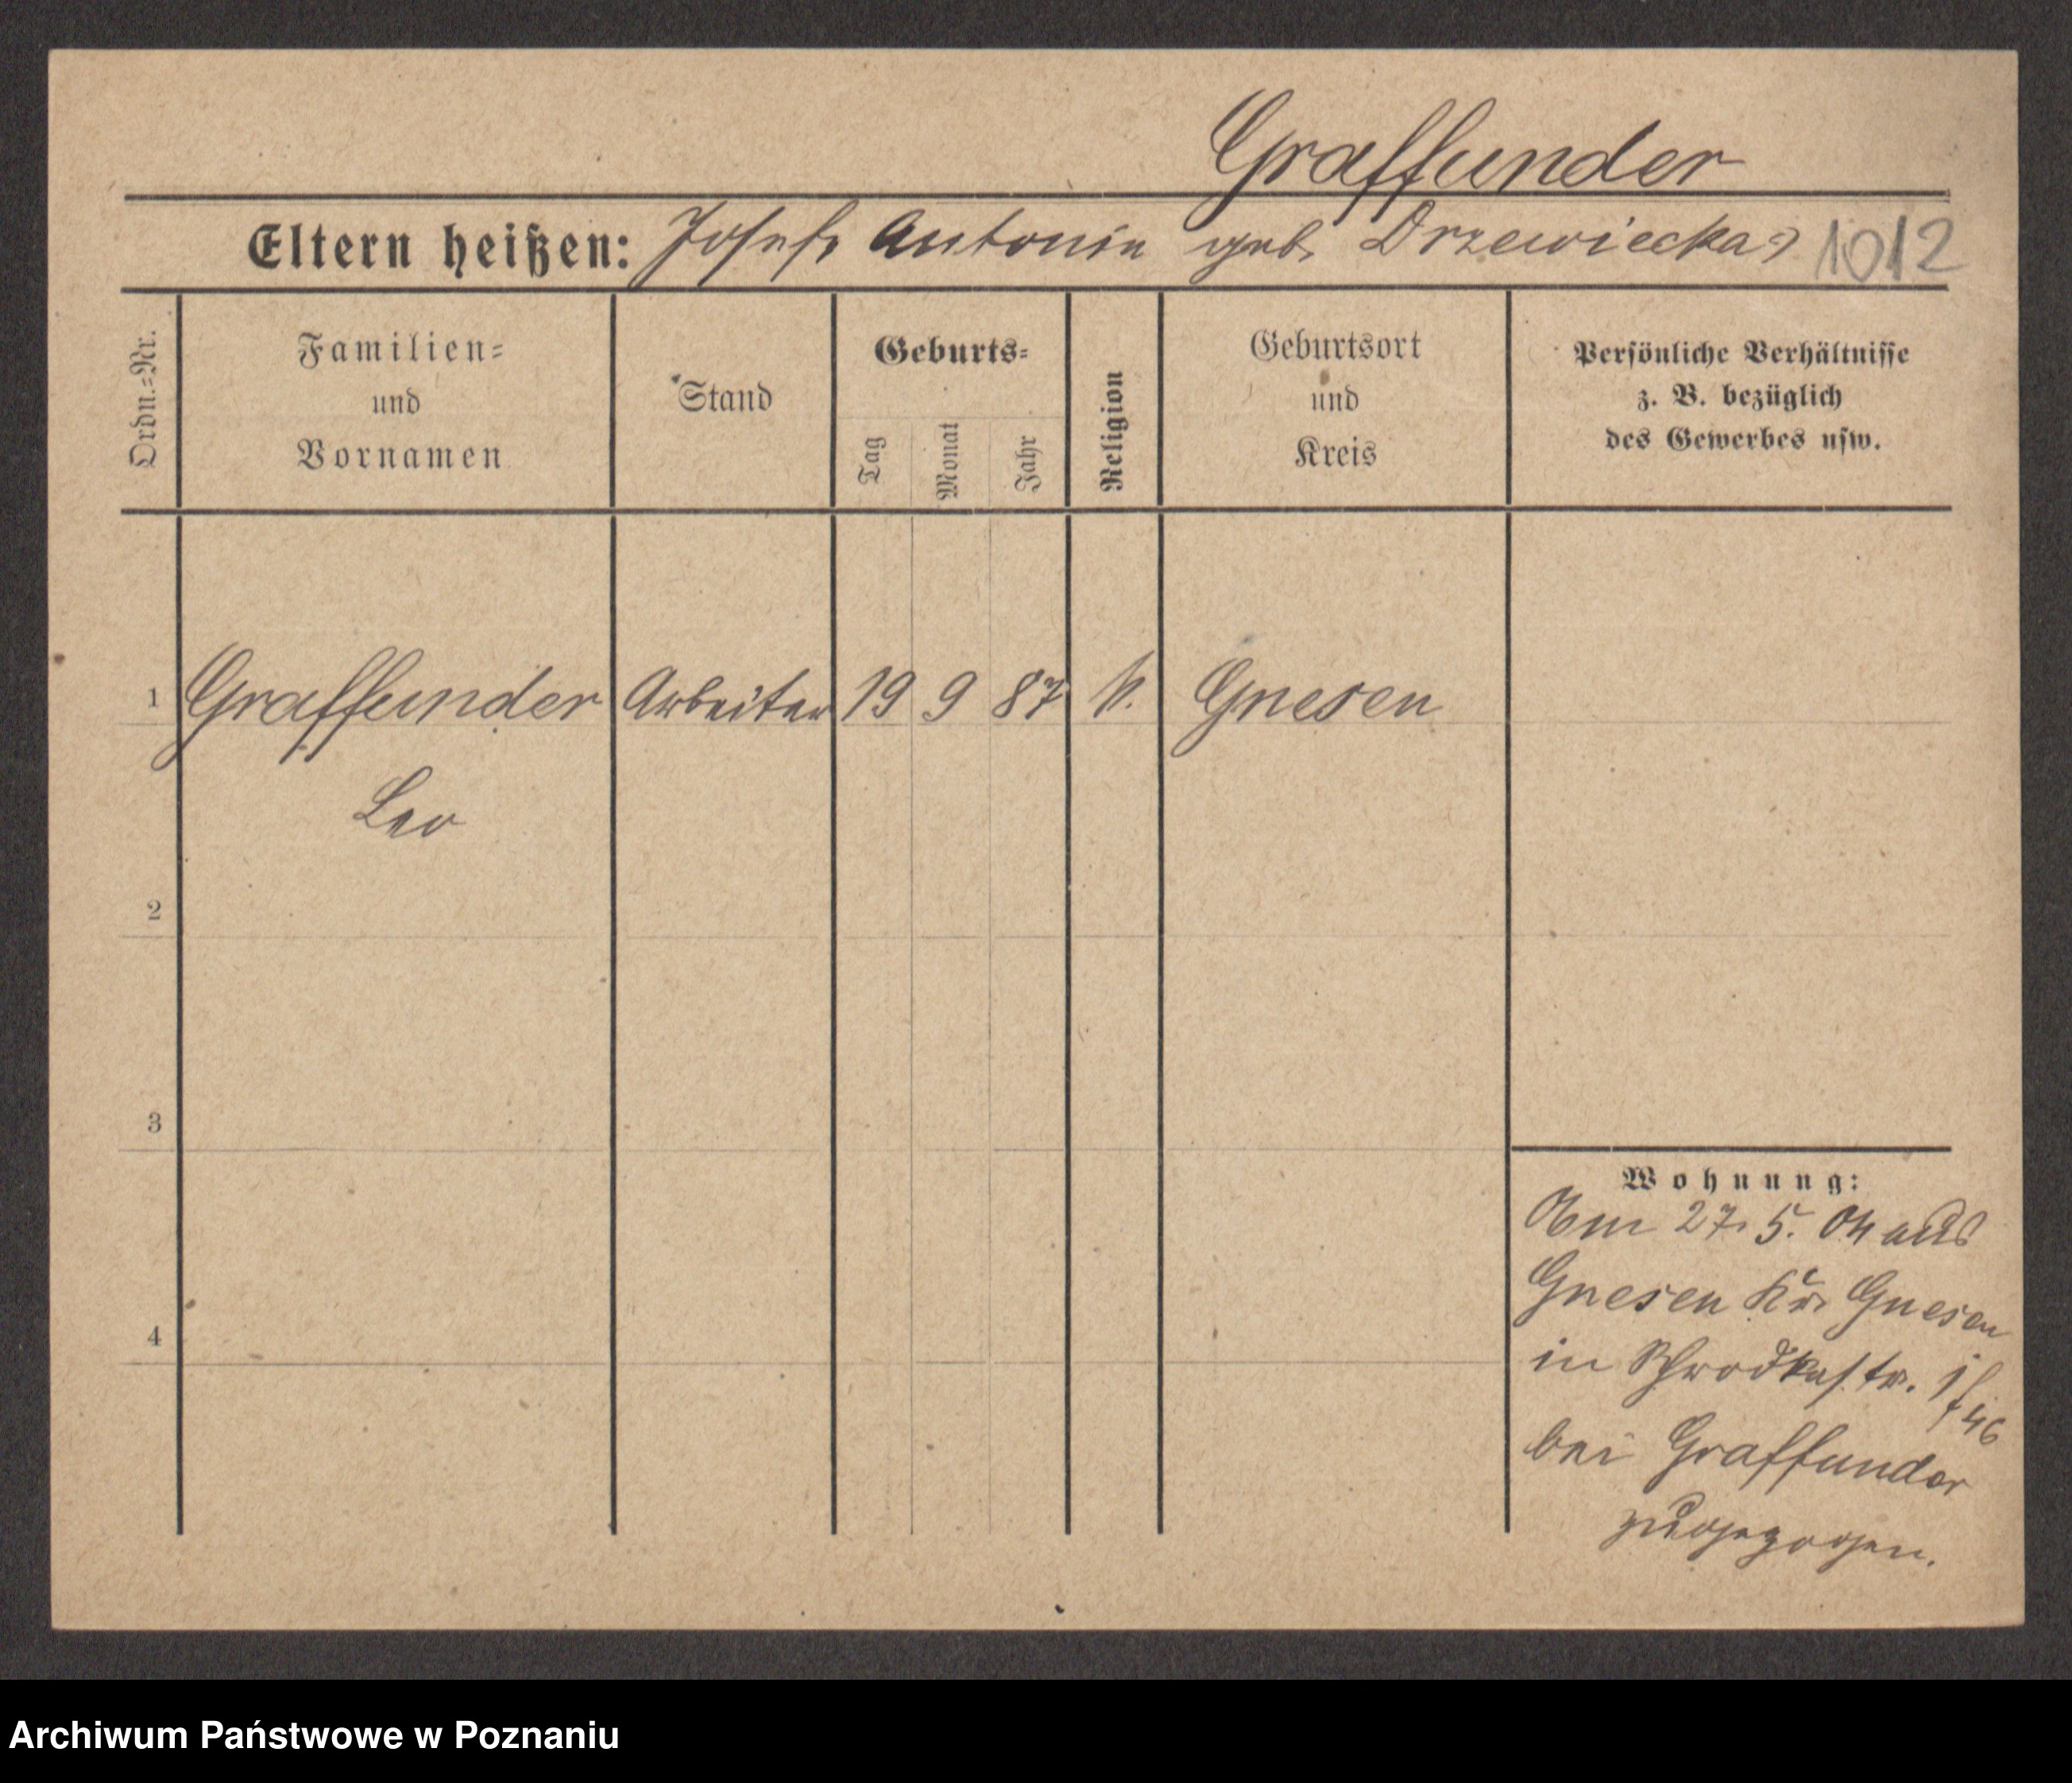 Graffunder
Eltern heißen: Josef, Antonie geb. Drzewiecka 1012
Ordn.=Nr.
Familien=
und
Vornamen
Stand
Geburts=
Tag
Monat
Jahr
Religion
Geburtsort
und
Kreis
Persönliche Verhältnisse
z. B. bezüglich
des Gewerbes usw.
1 Graffunder Arbeiter 19 9 87 k. Gnesen
Leo
2
3
4
Wohnung:
Am 27. 5. 04 aus
Gnesen Kr. Gnesen
in Schrodkastr. 1
bei Graffunder
zugezogen.
Archiwum Państwowe w Poznaniu